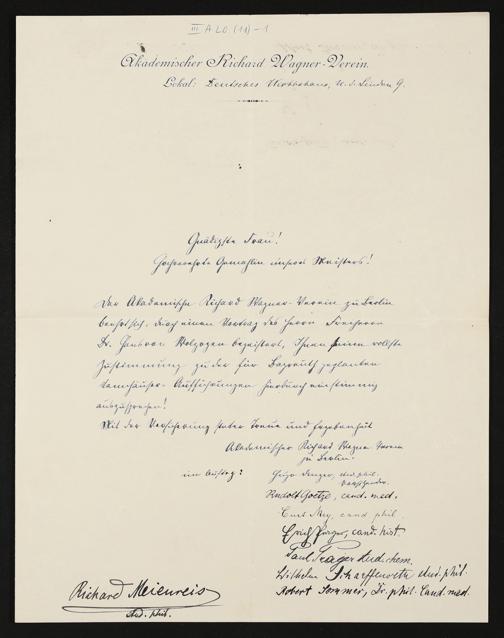 III A 20 (11) - 1
Akademischer Richard Wagner-Verein.
Lokal: Deutsches Wirthshaus, U. d. Linden 9.
Gnädigste Frau!
Hochverehrte Gemahlin unseres Meisters!
Der Akademische Richard Wagner-Verein zu Berlin
beehrt sich, durch einen Vortrag des Herrn Freiherrn
Dr. Hans von Wolzogen begeistert, Ihnen seine vollste
Zustimmung zu der für Bayreuth geplanten
Tannhäuser-Aufführungen hierdurch einstimmig
auszusprechen!
Mit der Versicherung steter Treue und Ergebenheit
Akademischer Richard Wagner Verein
zu Berlin.
im Auftrag:
stud. phil.
Vorsitzender.
Rudolf Goetze, cand. med.
Curt Mey, cand. phil.
Erich Prager, cand. hist.
Paul Prager stud. chem.
Wilhelm stud. phil.
Robert Sommer, Dr. phil. Cand. med.
Richard Meienreis
stud. phil.